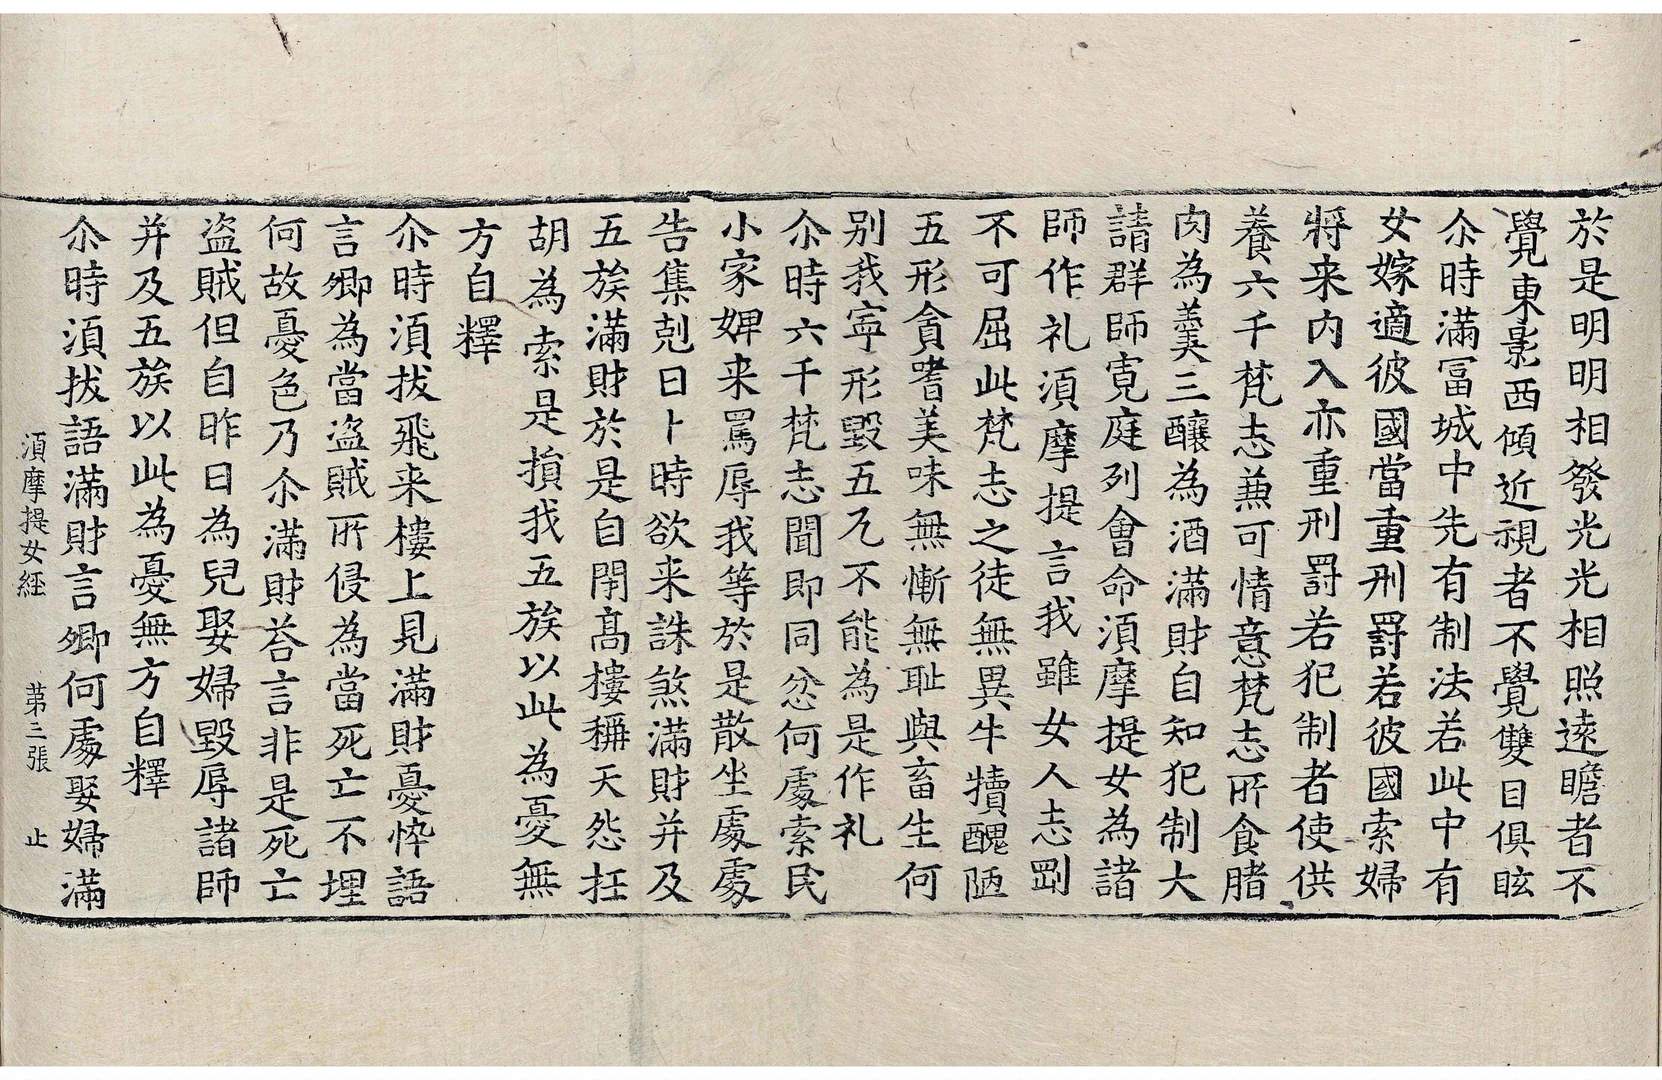 於是明明相發光光相照遠瞻者不
覺東影西傾近視者不覺雙目俱眩
尒時滿冨城中先有制法若此中有
女嫁適彼國當重刑罸若彼國索婦
將来内入亦重刑罸若犯制者使供
養六千梵志兼可情意梵志所食腤
肉為羹三釀為酒滿財自知犯制大
請群師寛庭列會命湏摩提女為諸
師作礼湏摩提言我雖女人志𠛬
不可屈此梵志之徒無異牛犢醜陋
五形貪嗜美味無慚無耻與畜生何
别我寕形毀五兀不能為是作礼
尒時六千梵志聞即同忿何處索民
小家婢来罵辱我等於是散坐處處
告集剋日卜時欲来誅煞滿財并及
五族滿財於是自閇髙樓稱天怨抂
胡為索是損我五族以此為憂無
方自釋
尒時湏拔飛来樓上見滿財憂悴語
言卿為當盗賊所侵為當死亡不埋
何故憂色乃尒滿財荅言非是死亡
盗賊但自昨日為兒娶婦毀辱諸師
并及五族以此為憂無方自釋
尒時湏拔語滿財言卿何處娶婦滿
湏摩提女経 苐三張 止